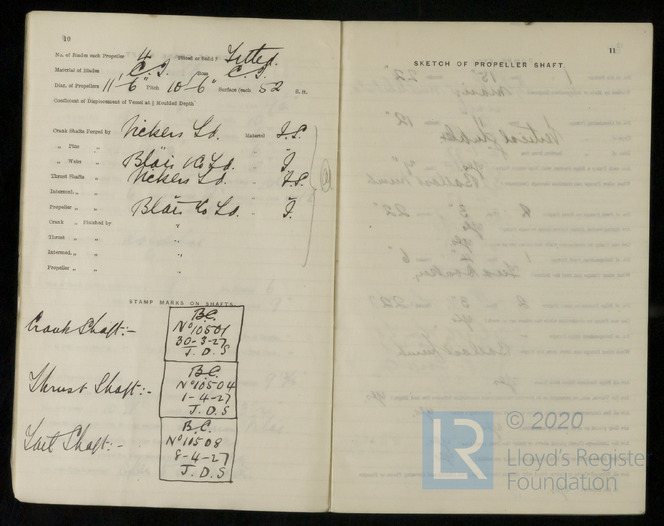 10
No. of Blades each Propeller 4 Fitted or Solid? Fitted.
Material of Blades C.I. Boss C.I.
Diam. of Propellers 11' 6" Pitch 10' 6" Surface (each 52 S. ft.
Coefficient of Displacement of Vessel at ¾ Moulded Depth
Crank Shafts Forged by Vickers Ld. Material I.S.
„ Pins „ „
„ Webs „ Blair & Co Ld. „ I.
Thrust Shafts „ Vickers Ld. „ I.S.
Intermed. „ „ „
Propeller „ „ Blair & Co Ld. „ I.
Crank „ Finished by „
Thrust „ „ „
Intermed. „ „ „
Propeller „ „ „
STAMP MARKS ON SHAFTS.
Crank Shaft:-
B.C.
No 10501
30-3-27
J.D.S
Thrust Shaft:-
B.C.
No 10504
1-4-27
J.D.S
Tail Shaft:-
B.C.
No 10508
8-4-27
J.D.S
11
SKETCH OF PROPELLER SHAFT.
LR
© 2020
Lloyd's Register
Foundation